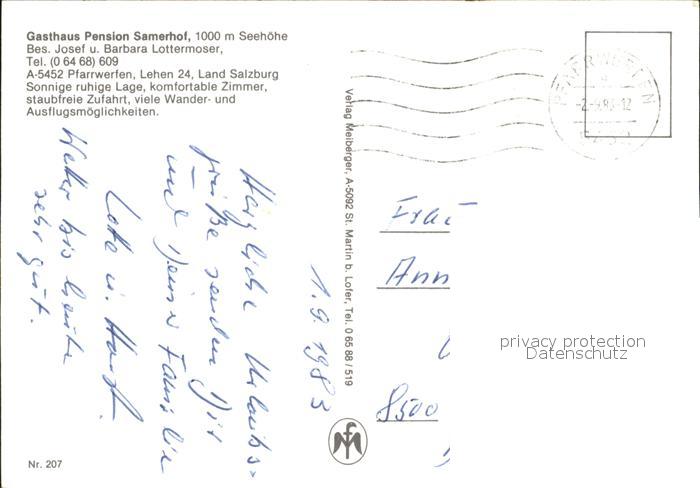 Gasthaus Pension Samerhof, 1000 m Seehöhe
Bes. Josef u. Barbara Lottermoser,
Tel. (0 64 68) 609
A-5452 Pfarrwerfen, Lehen 24, Land Salzburg
Sonnige ruhige Lage, komfortable Zimmer,
staubfreie Zufahrt, viele Wander- und
Ausflugsmöglichkeiten.
1.9.1983
Herzliche Urlaubs-
grüße senden Dir
und Deiner Familie
Lotte u. Horst.
Wetter bis heute
sehr gut.
Verlag Meiberger, A-5092 St. Martin b. Lofer, Tel. 0 65 88 / 519
PFARRWERFEN
5452
Frau
Ann
8500
privacy protection
Datenschutz
Nr. 207